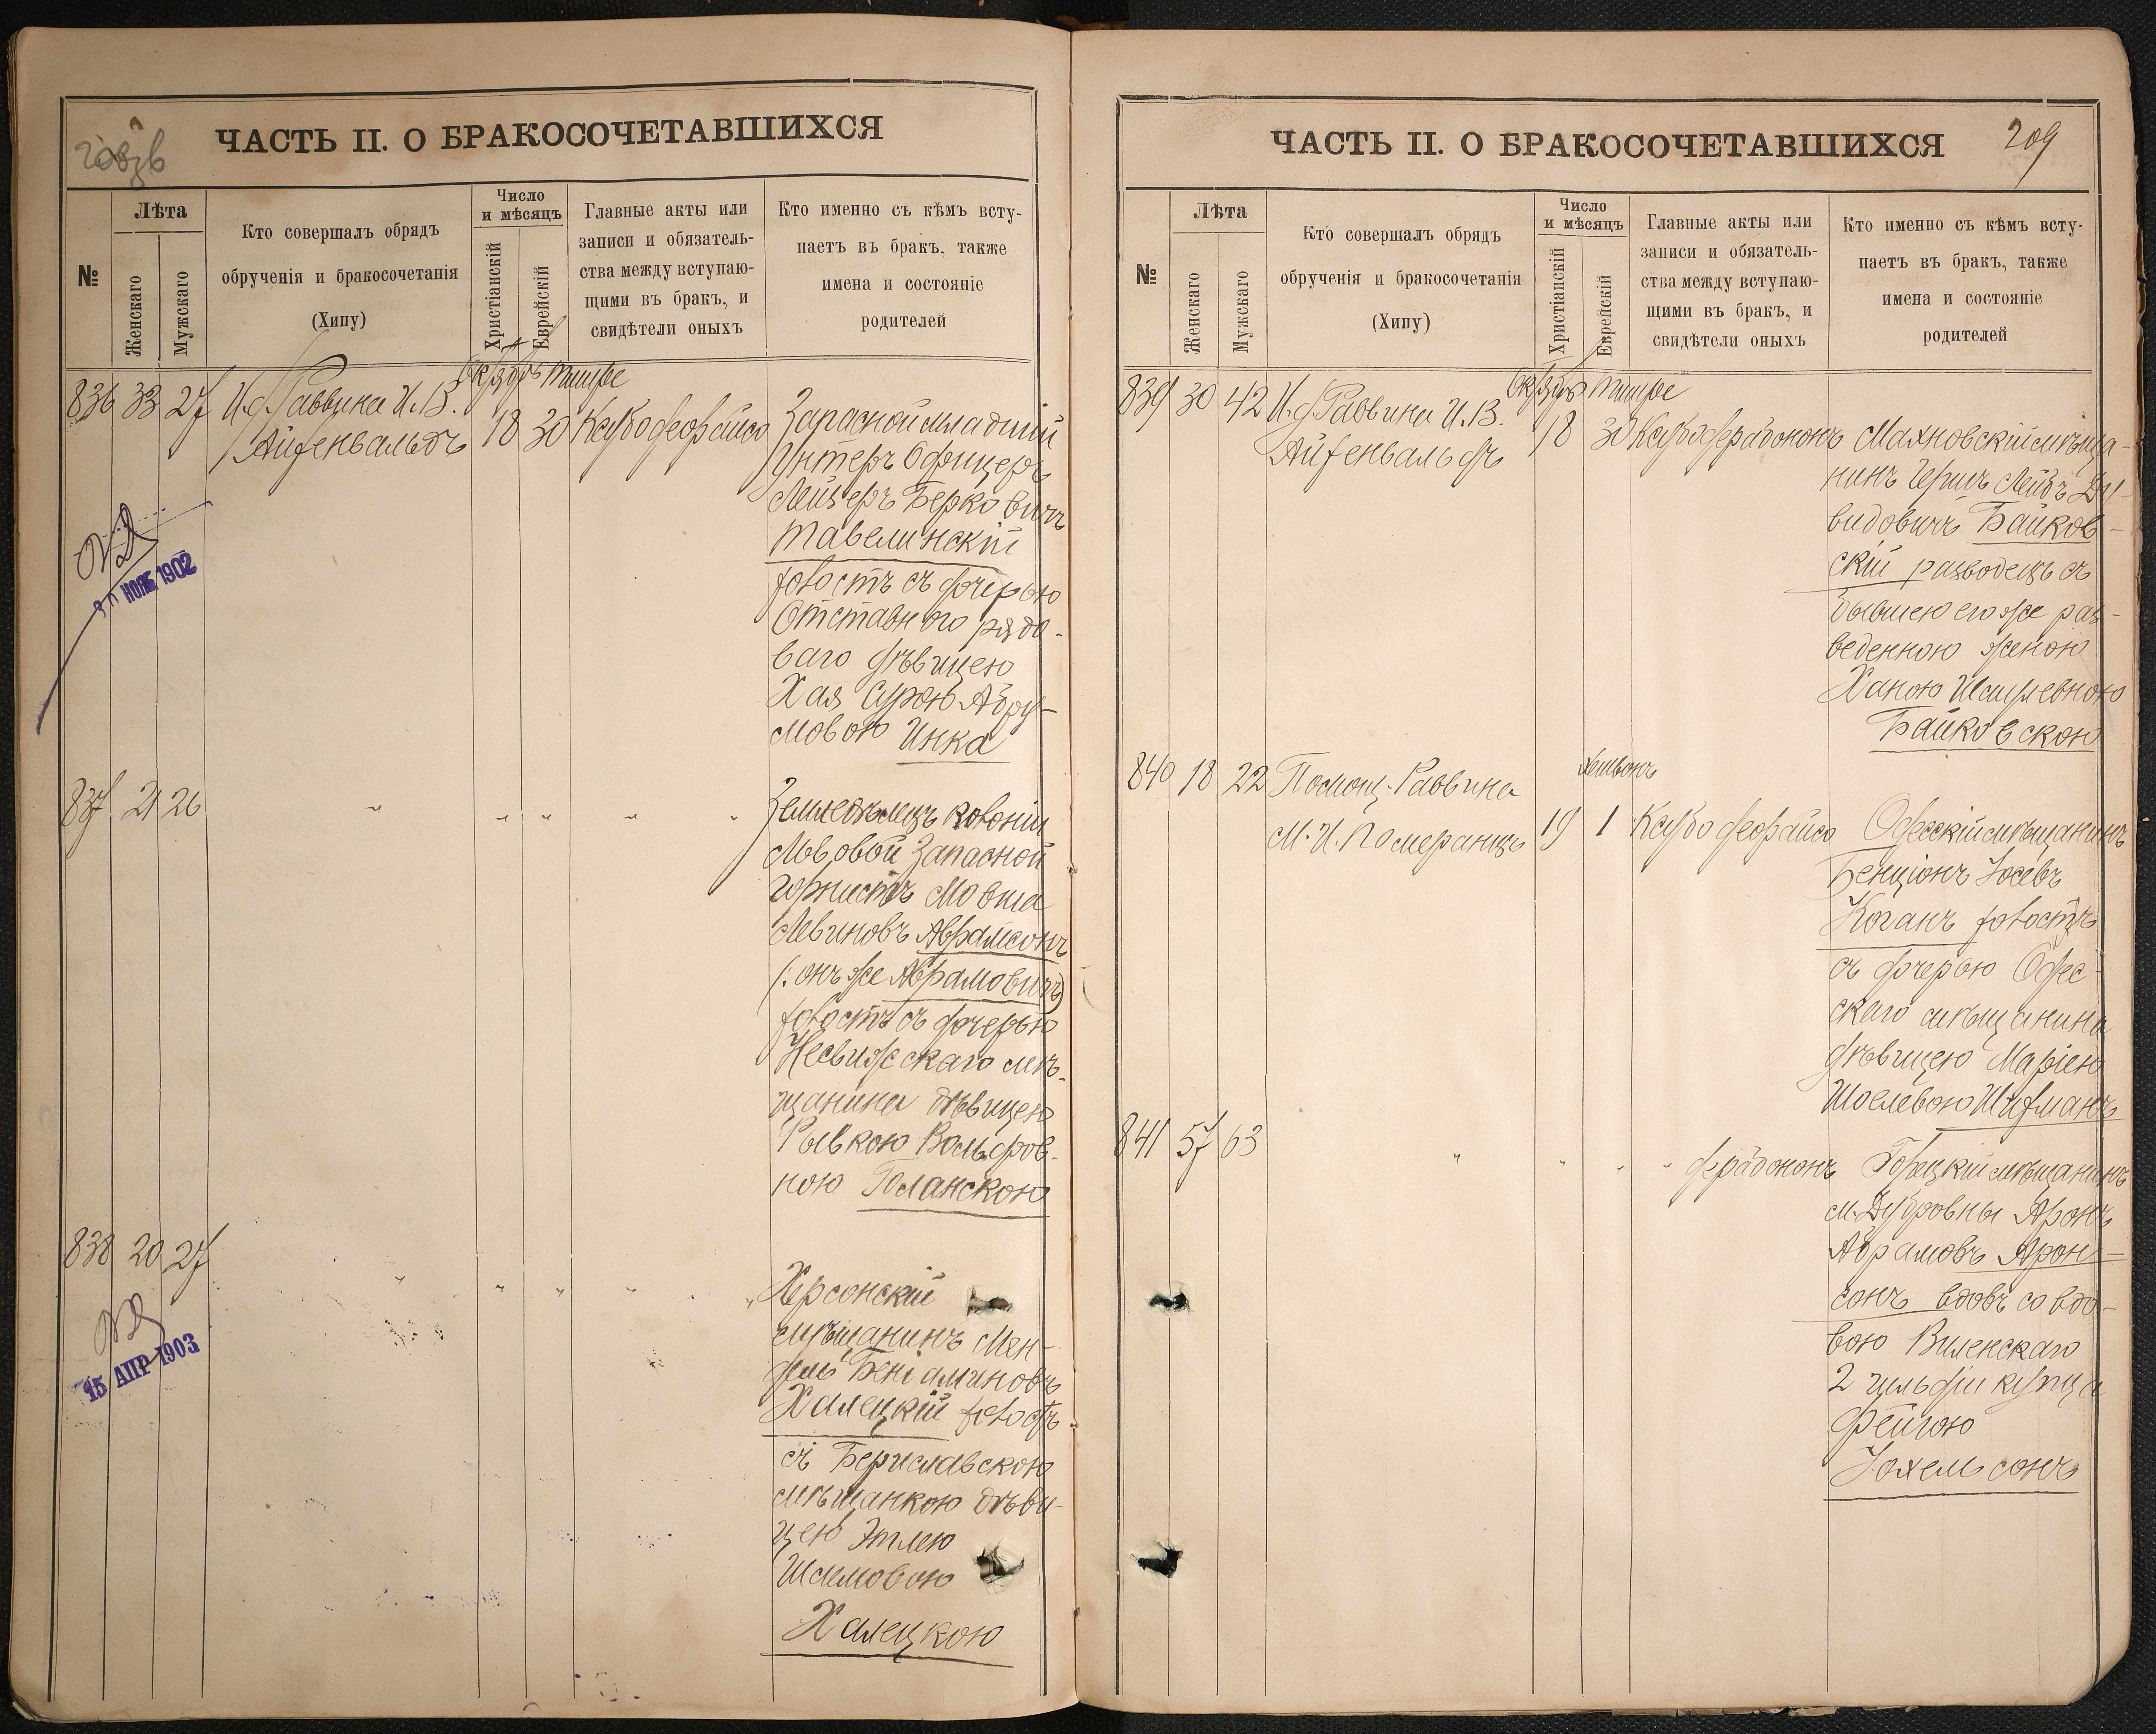 ЧАСТЬ II. О БРАКОСОЧЕТАВШИХСЯ
№
Лѣта
Женскаго
Мужскаго
Кто совершалъ обрядъ
обрученія и бракосочетанія
(Хипу)
Число
и мѣсяцъ
Христіанскій
Еврейскій
Главные акты или
записи и обязатель-
ства между вступаю-
щими въ бракъ, и
свидѣтели оныхъ
Кто именно съ кѣмъ всту-
паетъ въ бракъ, также
имена и состояніе
родителей
836 33 27 И. д. Раввина И. В.
Айзенвальдъ
Октябрь Тишре
18 30
Запасной младшій
Унтеръ Офицеръ
Лейзеръ Берковичъ
Тавелинскій
холостъ съ дочерью
Отставного рядо-
ваго дѣвицею
Хая Сурою Абру-
мовою Инка
НОЯБ 1902
837 21 26 " " " " "
Земледѣлецъ колоніи
Львовой Запасной
горнистъ Мовша
Левиновъ Абрамсонъ
(: онъ же Абрамовичъ)
холостъ съ дочерью
Несвижскаго мѣ-
щанина дѣвицею
Рывкою Вольфов-
ною Поланскою
838 20 27 " " " " "
Херсонскій
мѣщанинъ Мен-
дель Беніаминовъ
Халецкій холостъ
съ Бериславскою
мѣщанкою дѣви-
цею Этлею
Шлемовою
Халецкою
15 АПР 1903
ЧАСТЬ II. О БРАКОСОЧЕТАВШИХСЯ
209
№
Лѣта
Женскаго
Мужскаго
Кто совершалъ обрядъ
обрученія и бракосочетанія
(Хипу)
Число
и мѣсяцъ
Христіанскій
Еврейскій
Главные акты или
записи и обязатель-
ства между вступаю-
щими въ бракъ, и
свидѣтели оныхъ
Кто именно съ кѣмъ всту-
паетъ въ бракъ, также
имена и состояніе
родителей
839 30 42 И. д. Раввина И. В.
Айзенвальдъ
Октябрь Тишре
18 30
Махновскій мѣща-
нинъ Гершъ Лейбъ Да-
видовичъ Байков-
скій разводецъ съ
бывшею его же раз-
веденною женою
Ханою
Байковскою
840 18 22 Помощ. Раввина
М. И. Померанцъ
Хешвонъ
19 1
Одесскій мѣщанинъ
Бенціонъ Іосевъ
Коганъ холостъ
съ дочерью Одес-
скаго мѣщанина
дѣвицею Маріею
Шоелевою Шифманъ
841 57 63 " " " "
Горецкій мѣщанинъ
м. Дубровны Аронъ
Абрамовъ Арон-
сонъ вдовъ со вдо-
вою Виленскаго
2 гильдіи купца
Фейгою
Іохельсонъ